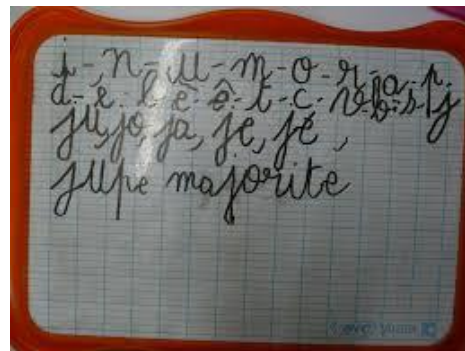 i-n-u-m-o-r-a-p.
d-é-l-è-ê-t-c-v-b-s-j
ju, jo, ja, je, jé,
jupe majorité